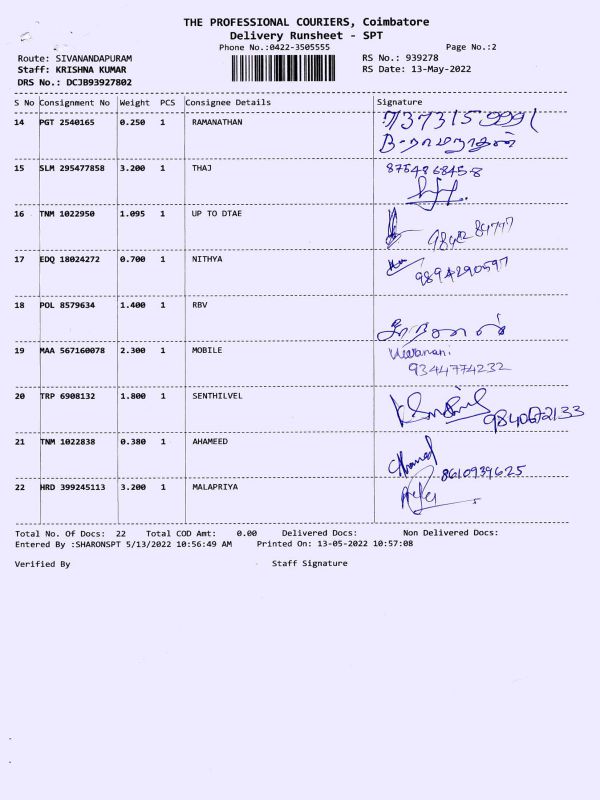 THE PROFESSIONAL COURIERS, Coimbatore
Delivery Runsheet - SPT
Phone No.:0422-3505555 Page No.:2
Route: SIVANANDAPURAM RS No.: 939278
Staff: KRISHNA KUMAR RS Date: 13-May-2022
DRS No.: DCJB93927802
S No Consignment No Weight PCS Consignee Details Signature
14 PGT 2540165 0.250 1 RAMANATHAN
15 SLM 295477858 3.200 1 THAJ 8754868458
16 TNM 1022950 1.095 1 UP TO DTAE
17 EDQ 18024272 0.700 1 NITHYA 9894290597
18 POL 8579634 1.400 1 RBV
19 MAA 567160078 2.300 1 MOBILE
9344774232
20 TRP 6908132 1.800 1 SENTHILVEL 9840672133
21 TNM 1022838 0.380 1 AHAMEED Ahamed
8610939625
22 HRD 399245113 3.200 1 MALAPRIYA
Total No. Of Docs: 22 Total COD Amt: 0.00 Delivered Docs: Non Delivered Docs:
Entered By :SHARONSPT 5/13/2022 10:56:49 AM Printed On: 13-05-2022 10:57:08
Verified By Staff Signature